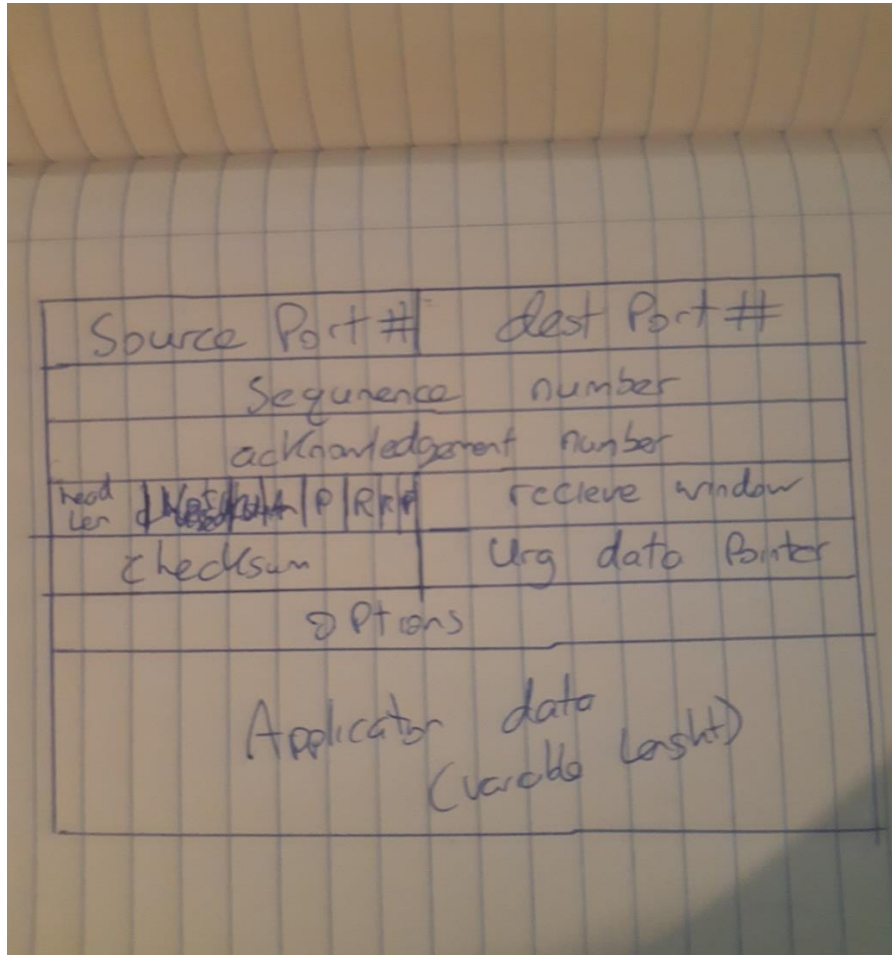 Source Port # dest Port #
Sequnence number
acknowledgement number
head
Len P R recieve window
checksum Urg data Pointer
options
Application data
(variable lenght)